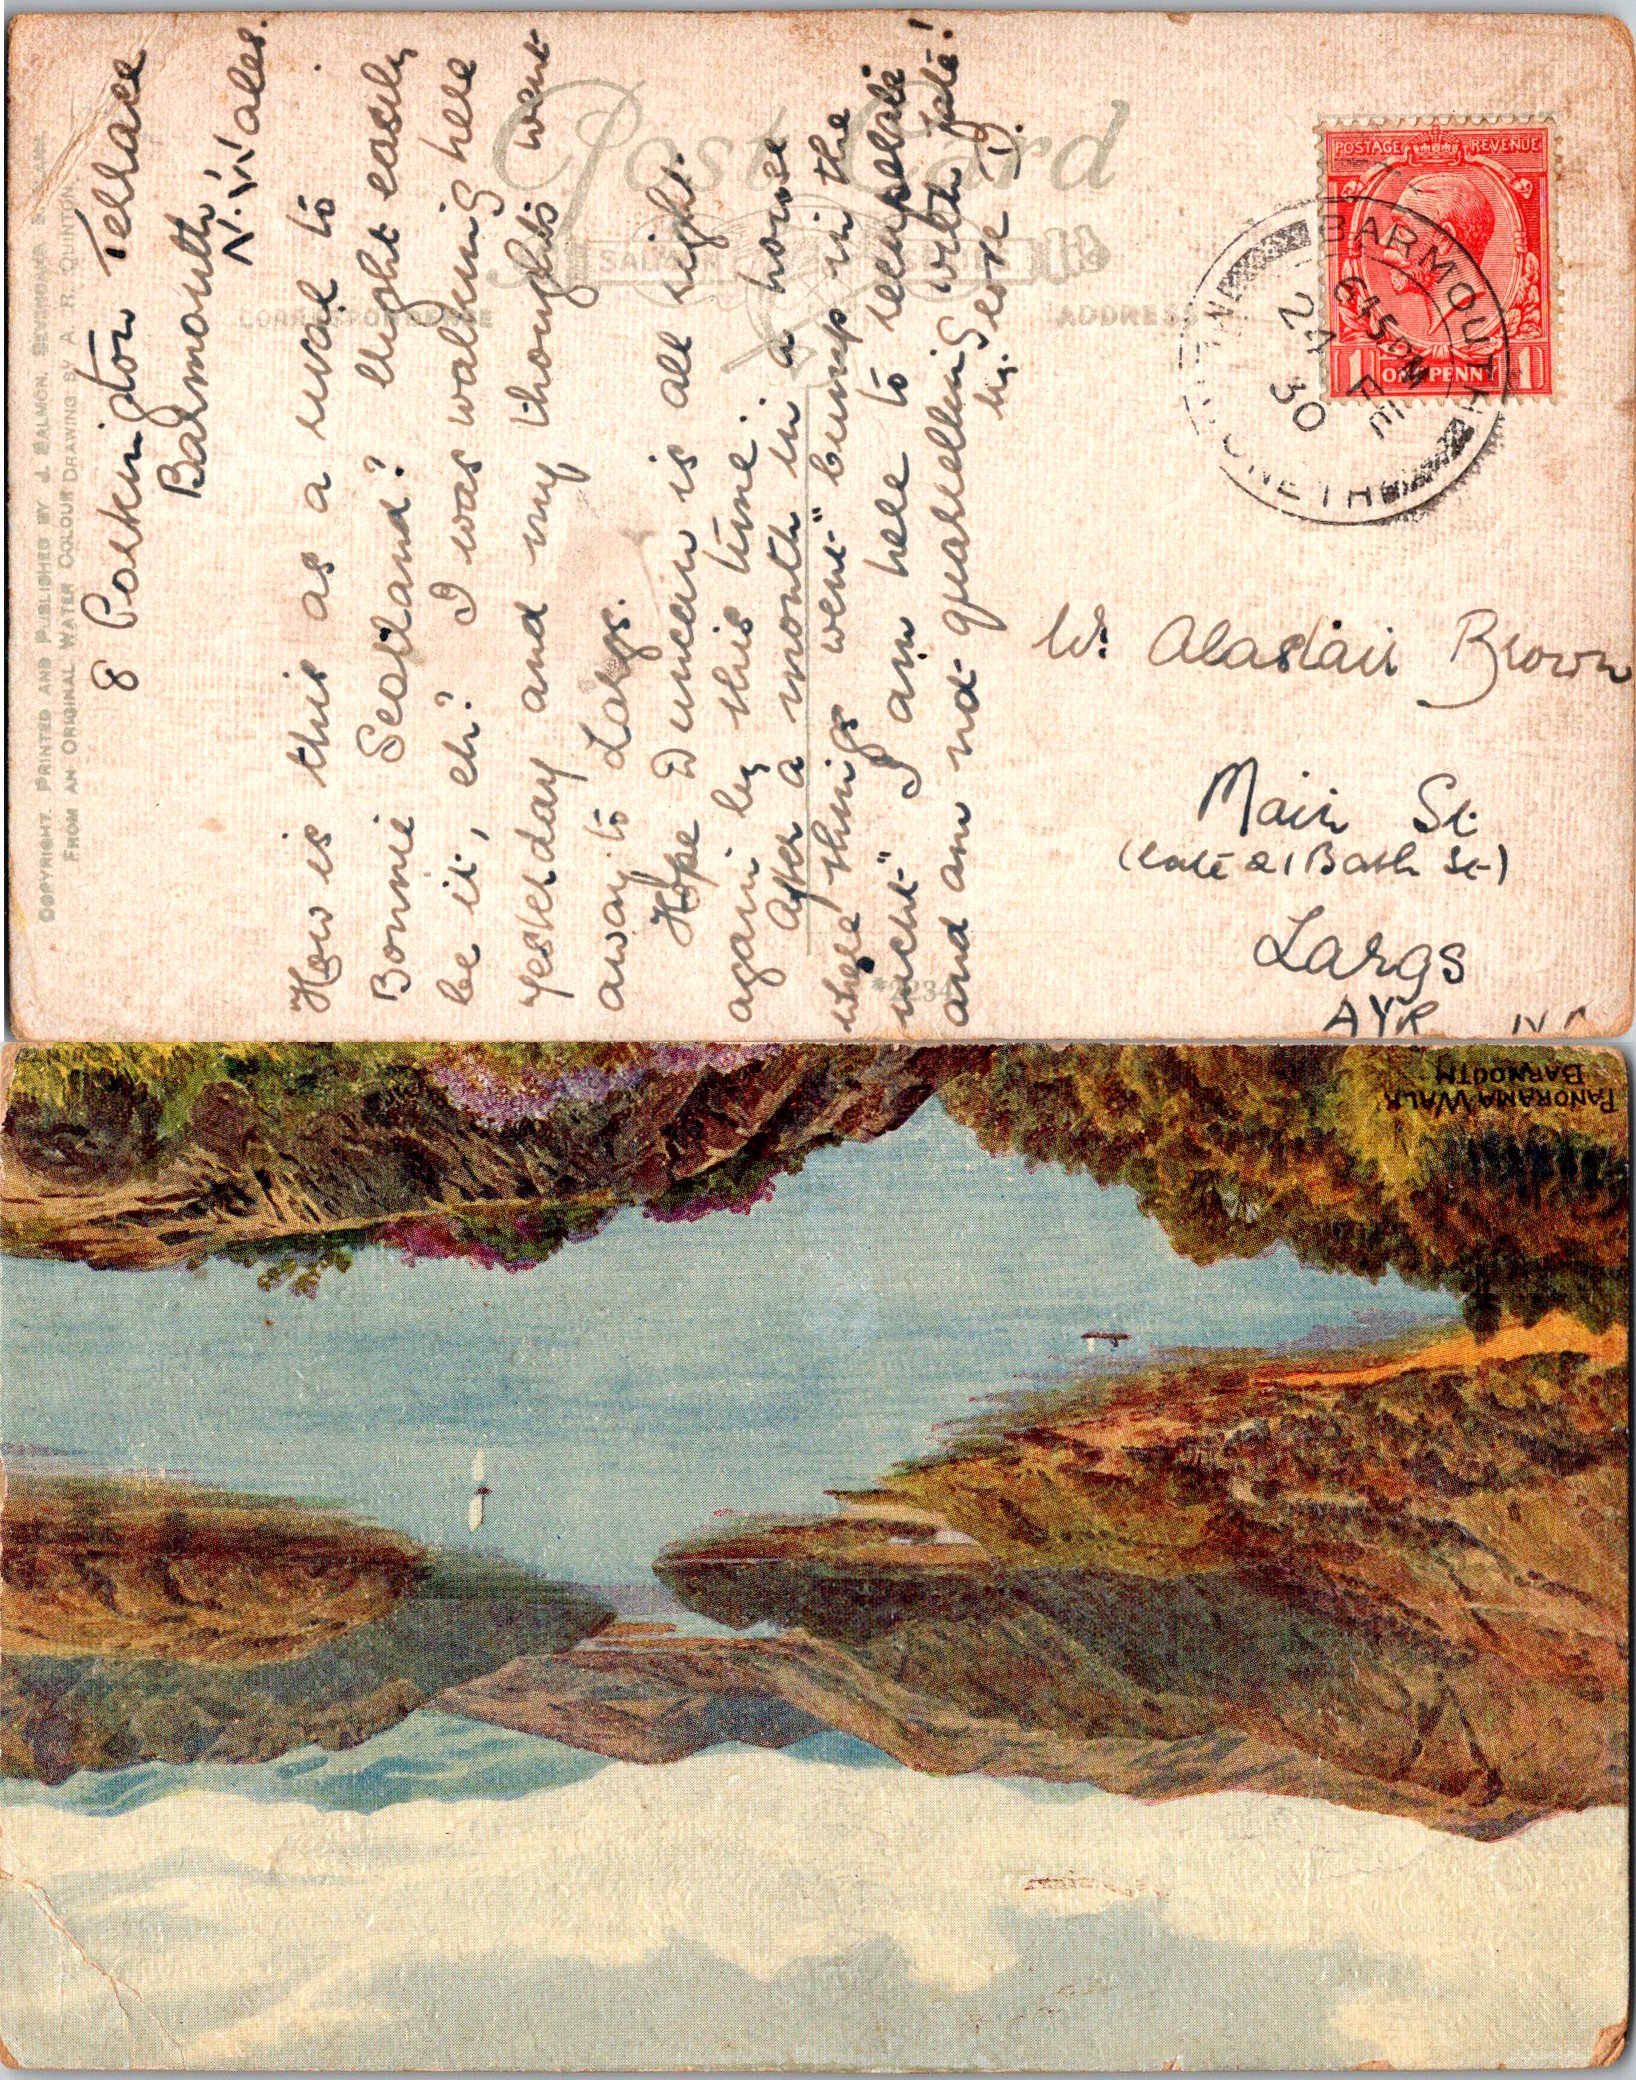 COPYRIGHT. PRINTED AND PUBLISHED BY J. SALMON, SEVENOAKS
FROM AN ORIGINAL WATER COLOUR DRAWING BY A. R. QUINTON
Post Card
SALMON
SERIES
CORRESPONDENCE
ADDRESS
8 Porkington Terrace
Barmouth
N. Wales.
How is this as a rival to
Bonnie Scotland? Might easily
be it, eh? I was walking here
yesterday and my thoughts went
away to Largs.
Hope Duncan is all right
again by this time.
After a month in a house
where things went "bump in the
nicht" I am here to recuperate
and am not quarelling with fate!
Love
POSTAGE REVENUE
1 ONE PENNY 1
BARMOUTH
6 45 PM
24 FE
30
MERIONETH
W. Alastair Brown
Main St
(late 21 Bath St)
Largs
AYR
*2234
PANORAMA WALK
BARMOUTH